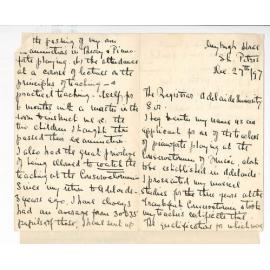 St. Peters
Dec 27th /97
The Registrar Adelaide University
Sir,
I beg to enter my name as an
applicant for one of the teachers
of pianoforte playing at the
Conservatorium of Music about
to be established in Adelaide.
I prosecuted my musical
studies for three years at the
Frankfurt Conservatorium & took
my teachers certificate there
The qualifications for which were
the passing of my exa-
minations in Theory & Piano-
forte playing, also the attendance
at a course of lectures on the
principles of teaching &
practical teaching. I
months with a master in the
room to instruct me & the
two children I taught
passed their examination
I also had the great privilege
of being allowed to watch the
teaching at the Conservatorium
Since my return to Adelaide
years ago, I have always
had an average from 30 to 35
pupils of these I have sent up